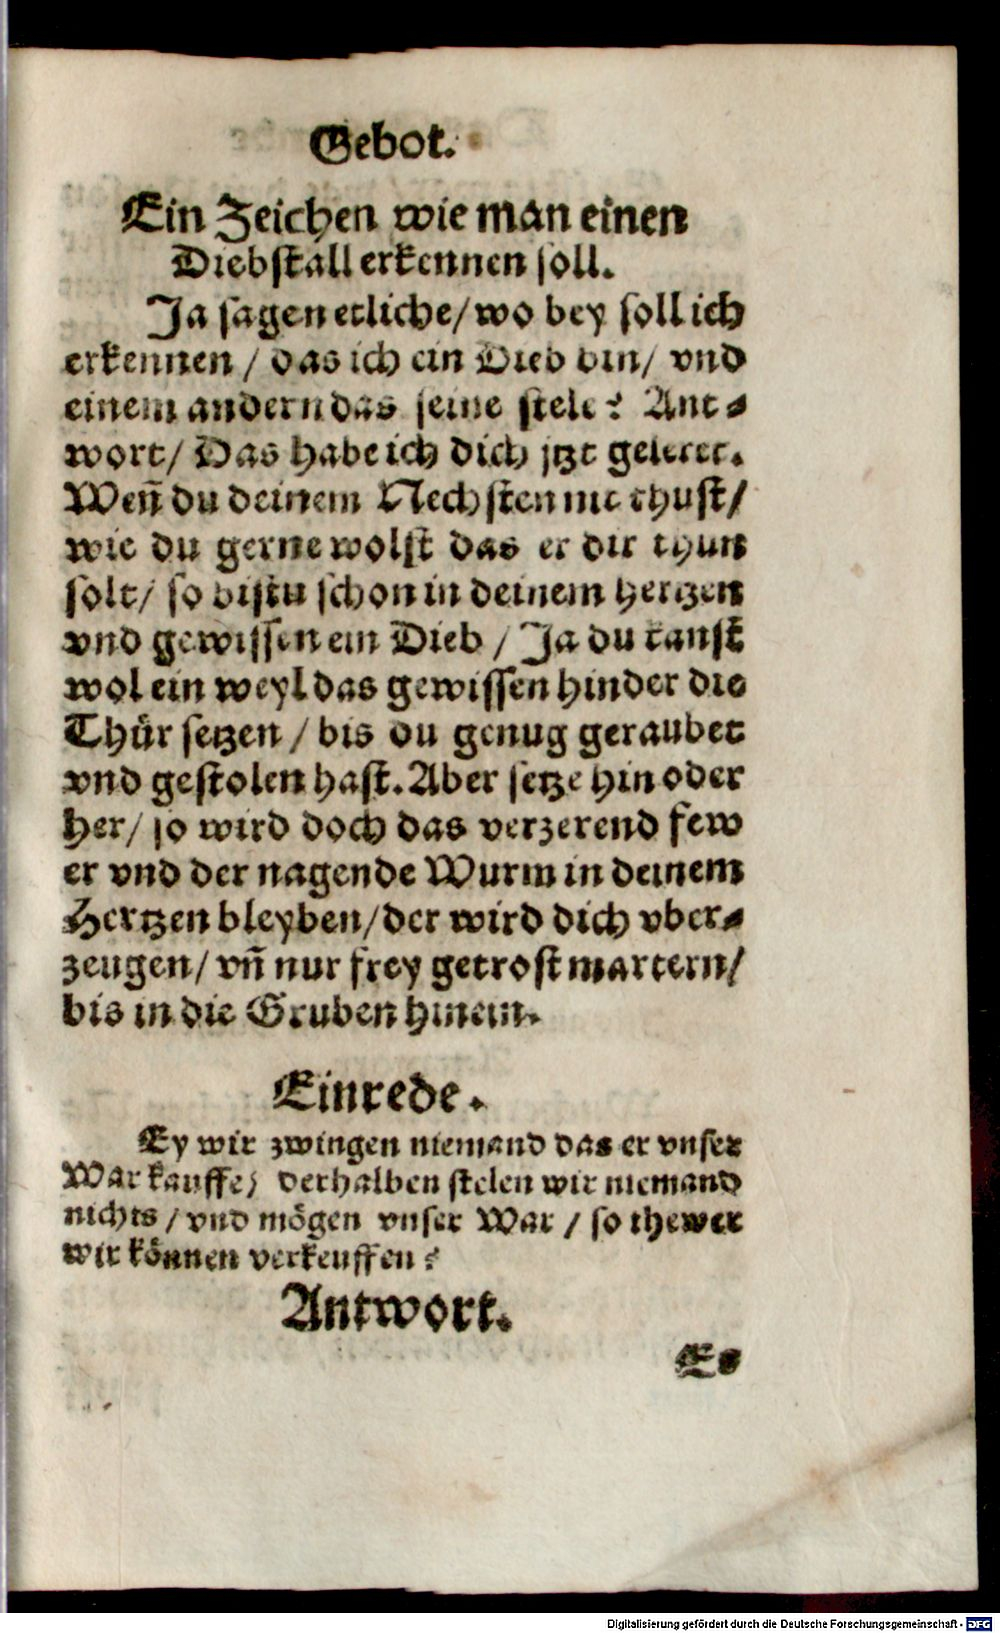 Gebot.
Ein Zeichen wie man einen
Diebstall erkennen soll.
Ja sagen etliche/ wo bey soll ich
erkennen / das ich ein Dieb bin/ vnd
einem andern das seine stele? Ant-
wort/ Das habe ich dich jtzt geleret.
Weñ du deinem Nechsten nit thust/
wie du gerne wolst das er dir thun
solt/ so bistu schon in deinem hertzen
vnd gewissen ein Dieb / Ja du kanst
wol ein weyl das gewissen hinder die
Thür setzen / bis du genug geraubet
vnd gestolen hast. Aber setze hin oder
her/ so wird doch das verzerend few
er vnd der nagende Wurm in deinem
Hertzen bleyben/ der wird dich vber-
zeugen/ vñ nur frey getrost martern/
bis in die Gruben hinein.
Einrede.
Ey wir zwingen niemand das er vnser
War kauffe/ derhalben stelen wir niemand
nichts / vnd mögen vnser War / so thewer
wir können verkeuffen?
Antwort.
Es
Digitalisierung gefördert durch die Deutsche Forschungsgemeinschaft - DFG